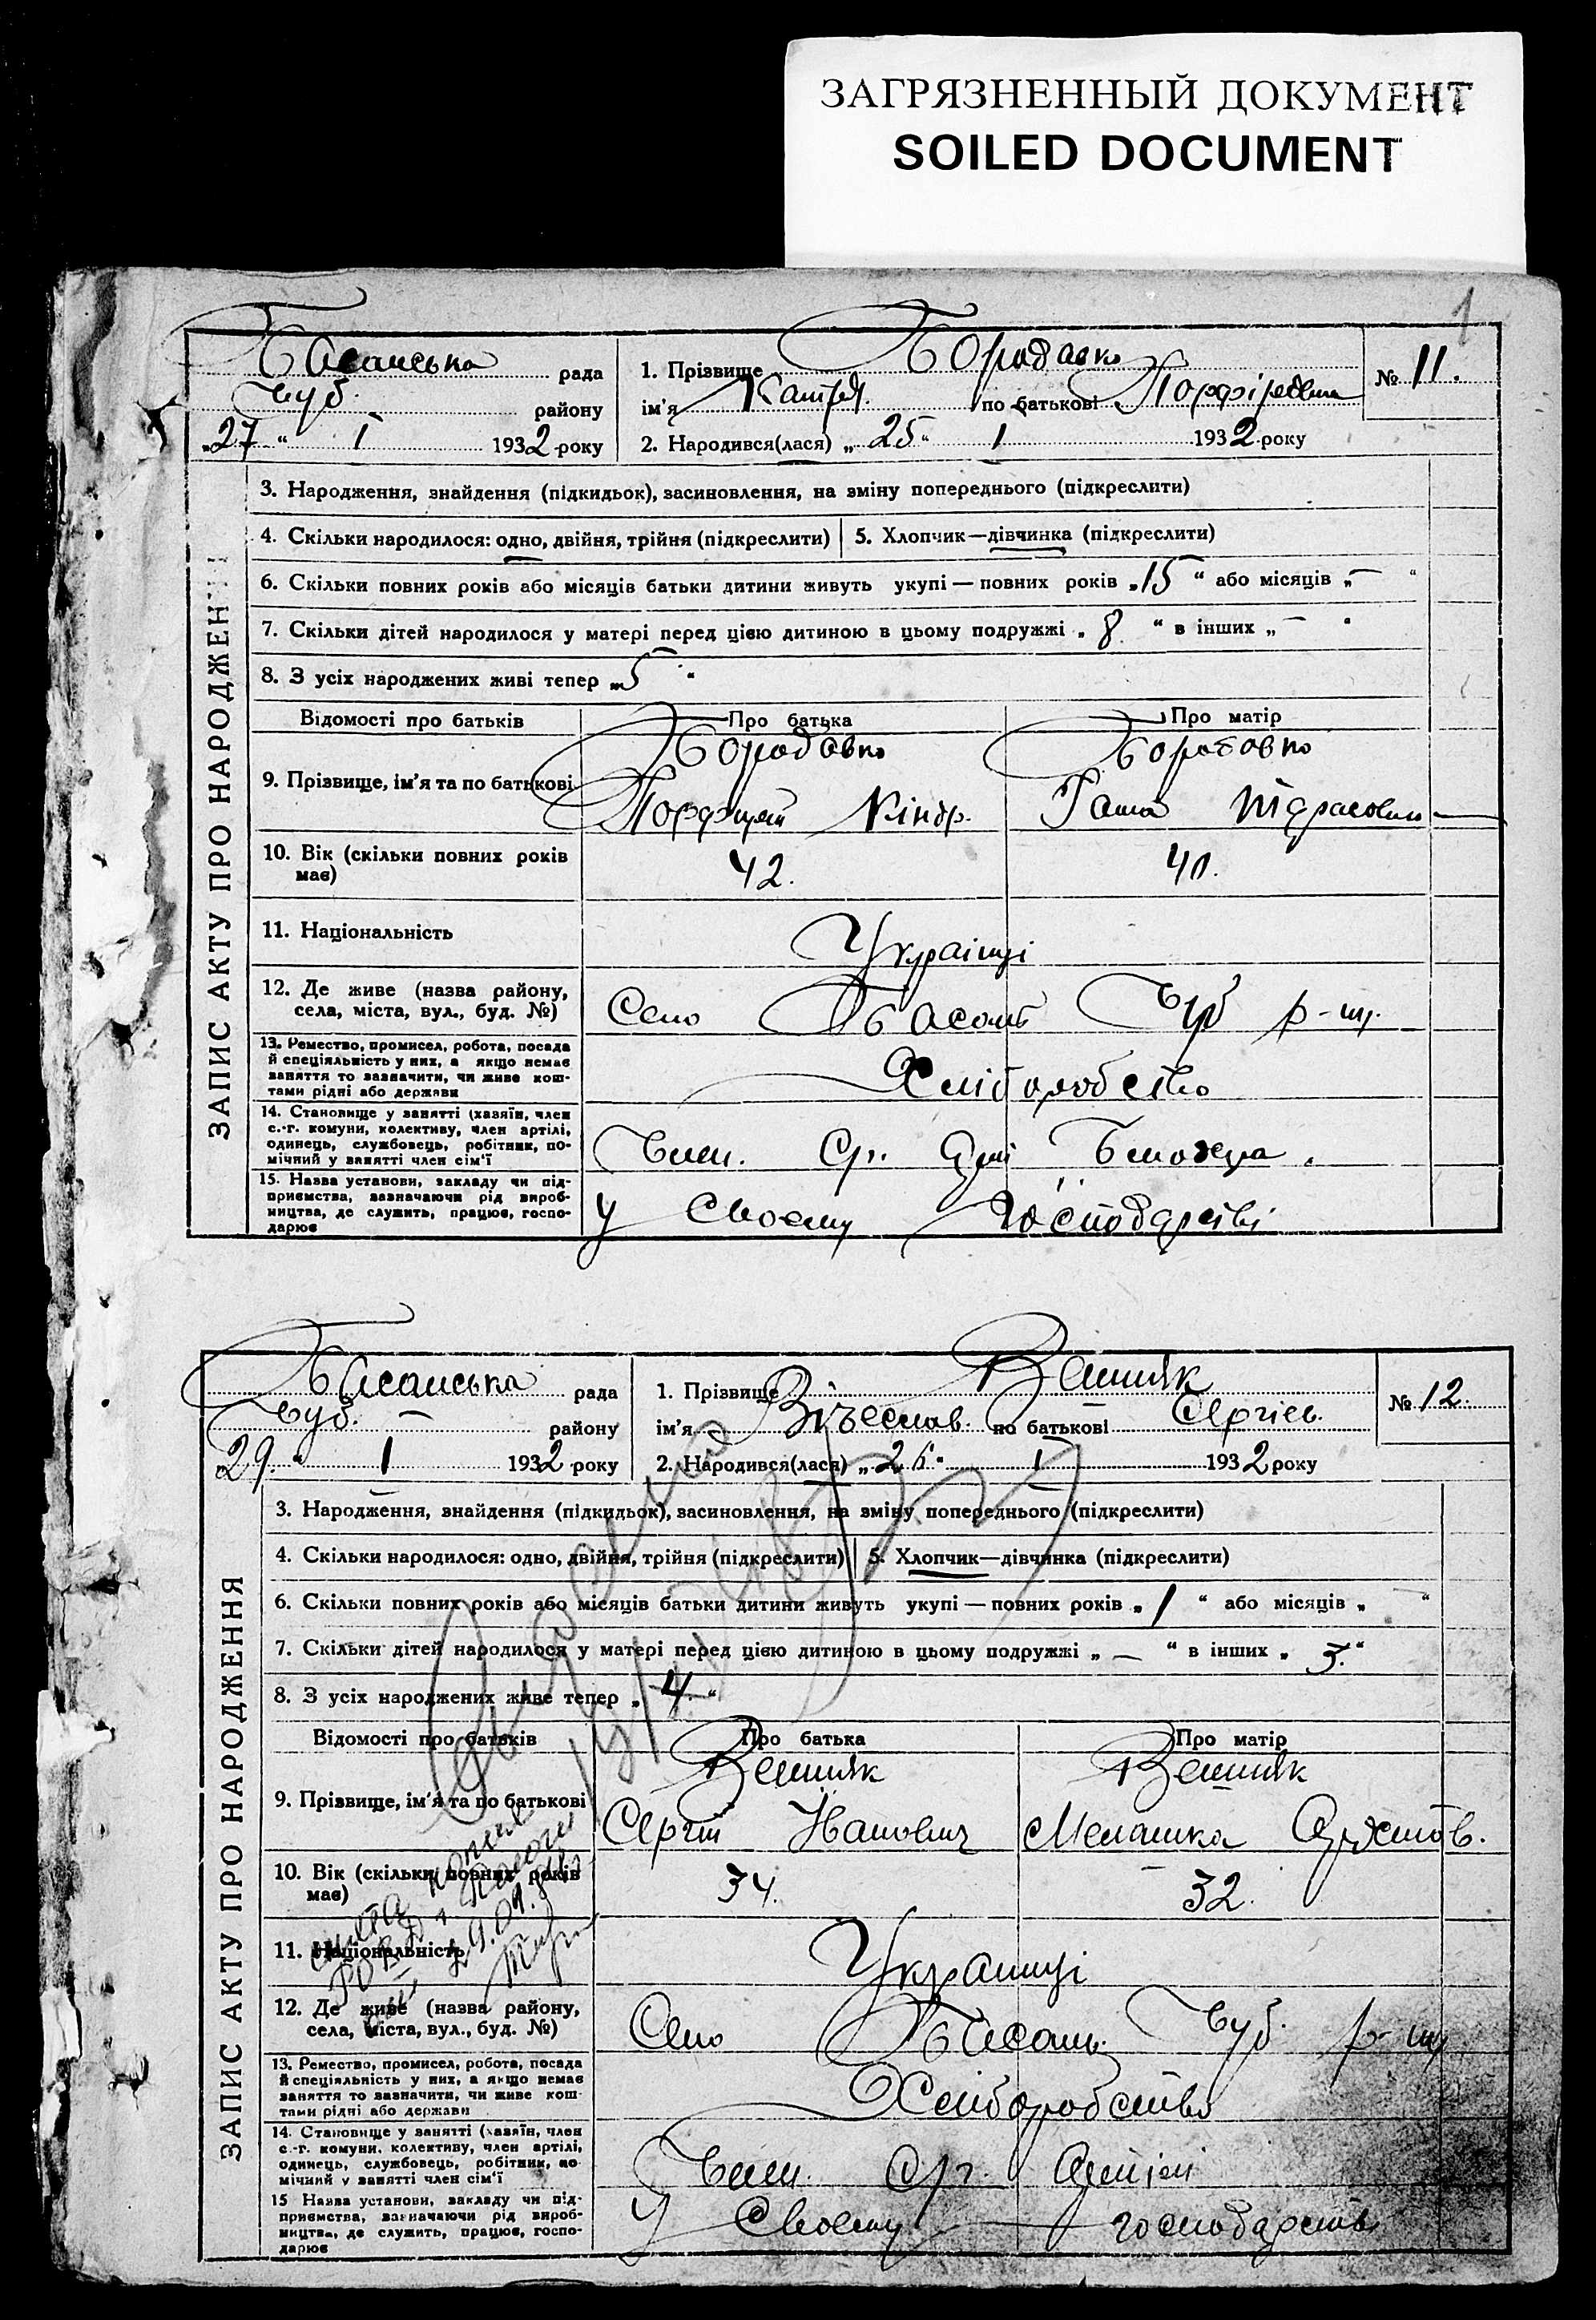 ЗАГРЯЗНЕННЫЙ ДОКУМЕНТ
SOILED DOCUMENT
1
Басанська рада
Чуб. району
„27" I 1932 року
1. Прізвище Бородавко
ім'я Катря по батькові
2. Народився(лася) „25" 1 1932 року
№ 11.
ЗАПИС АКТУ ПРО НАРОДЖЕННЯ
3. Народження, знайдення (підкидьок), засиновлення, на зміну попереднього (підкреслити)
4. Скільки народилося: одно, двійня, трійня (підкреслити) 5. Хлопчик—дівчинка (підкреслити)
6. Скільки повних років або місяців батьки дитини живуть укупі — повних років „15" або місяців „—"
7. Скільки дітей народилося у матері перед цією дитиною в цьому подружжі „8" в інших „—"
8. З усіх народжених живі тепер „5"
Відомості про батьків Про батька Про матір
9. Прізвище, ім'я та по батькові
Бородавко Бородавко
Кіндр. Ганна Тарасовна
10. Вік (скільки повних років має) 42. 40.
11. Національність Українці
12. Де живе (назва району, села, міста, вул., буд. №) Село Басань Чуб р-ну.
13. Ремество, промисел, робота, посада й спеціяльність у них, а якщо немає заняття то зазначити, чи живе коштами рідні або держави Хліборобство
14. Становище у занятті (хазяїн, член с.-г. комуни, колективу, член артілі, одинець, службовець, робітник, помічний у занятті член сім'ї Член. Ср.
15. Назва установи, закладу чи підприємства, зазначаючи рід виробництва, де служить, працює, господарює У своєму господарстві
Басанська рада
Чуб. району
„29" 1 1932 року
1. Прізвище
ім'я Вічеслав. по батькові Сергієв.
2. Народився(лася) „26" I 1932 року
№ 12.
ЗАПИС АКТУ ПРО НАРОДЖЕННЯ
3. Народження, знайдення (підкидьок), засиновлення, на зміну попереднього (підкреслити)
4. Скільки народилося: одно, двійня, трійня (підкреслити) 5. Хлопчик—дівчинка (підкреслити)
6. Скільки повних років або місяців батьки дитини живуть укупі — повних років „1" або місяців „ "
7. Скільки дітей народилося у матері перед цією дитиною в цьому подружжі „—" в інших „3."
8. З усіх народжених живе тепер „4."
Відомості про батьків Про батька Про матір
9. Прізвище, ім'я та по батькові
Сергій Іванович Мелашка
10. Вік (скільки повних років має) 34. 32.
11. Національність Українці
12. Де живе (назва району, села, міста, вул., буд. №) Село Басань Чуб. р-ну
13. Ремество, промисел, робота, посада й спеціяльність у них, а якщо немає заняття то зазначити, чи живе коштами рідні або держави Хліборобство
14. Становище у занятті (хазяїн, член с.-г. комуни, колективу, член артілі, одинець, службовець, робітник, помічний у занятті член сім'ї Член. С.г.
15 Назва установи, закладу чи підприємства, зазначаючи рід виробництва, де служить, працює, господарює У своєму господарстві